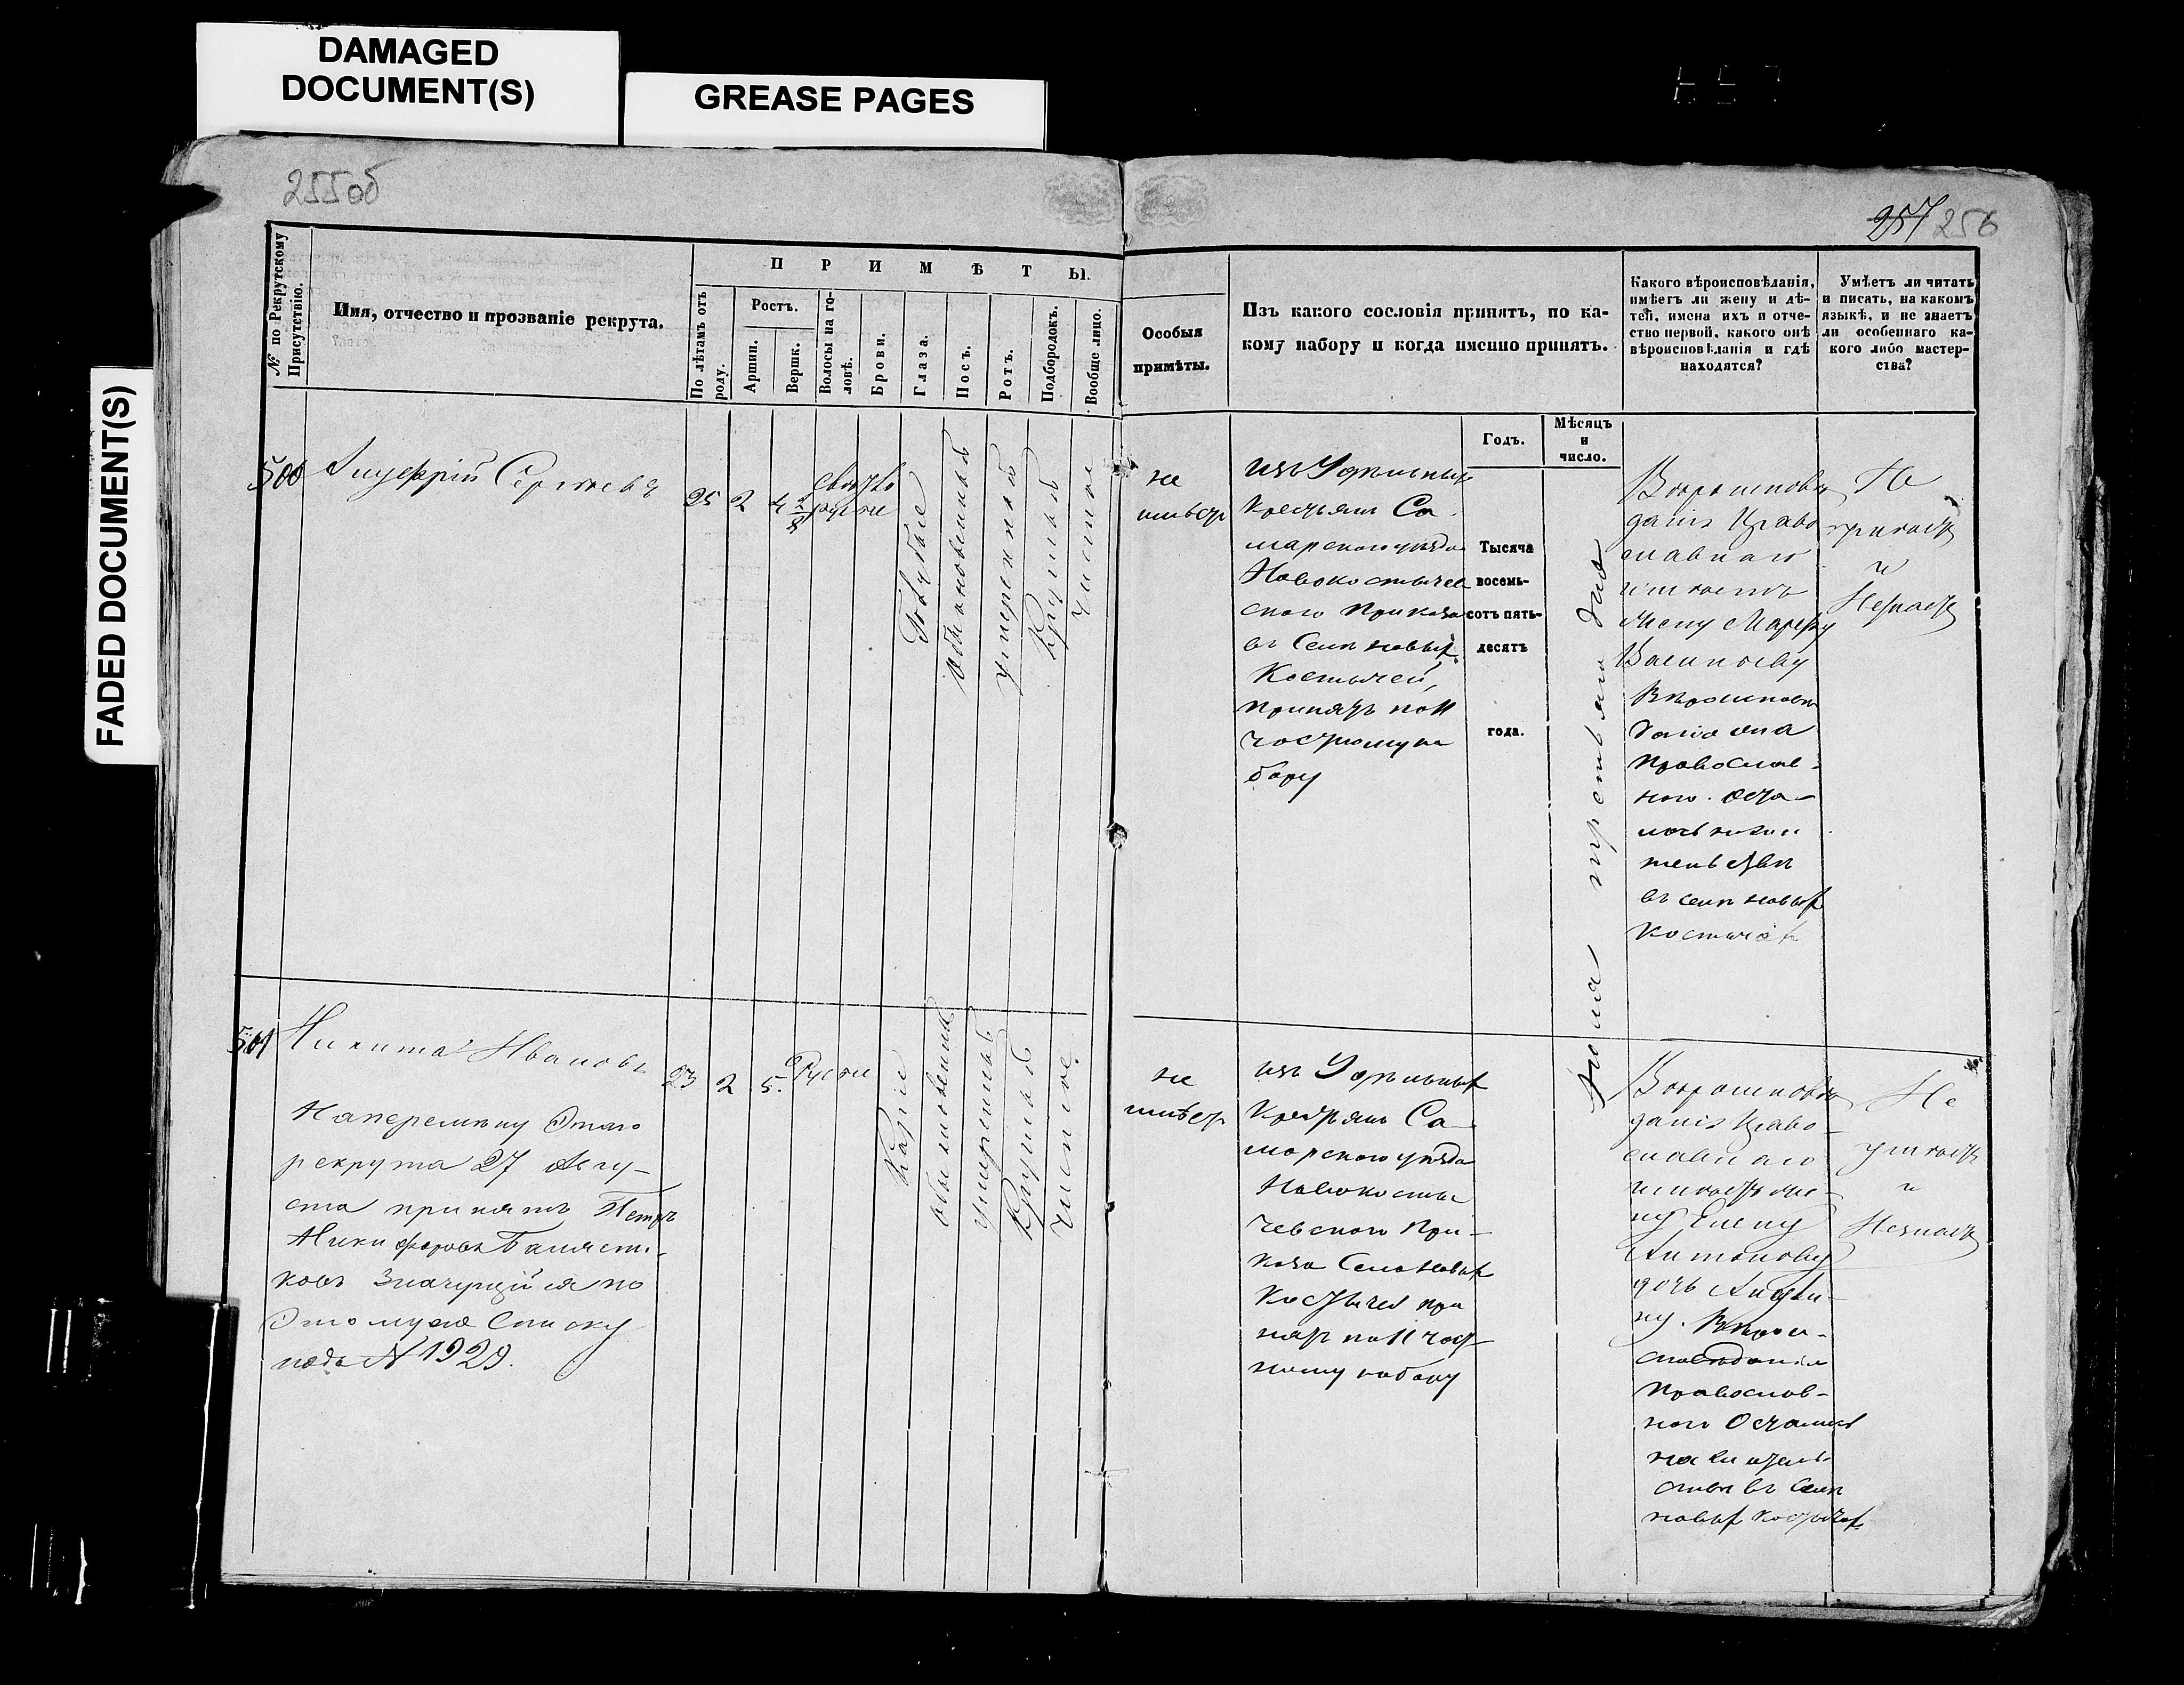 DAMAGED
DOCUMENT(S)
GREASE PAGES
FADED DOCUMENT(S)
255об
257 256
№ по Рекрутскому
Присутствію.
Имя, отчество и прозваніе рекрута.
П Р И М Ѣ Т Ы.
По лѣтамъ отъ
роду.
Ростъ.
Аршин.
Вершк.
Волосы на го-
ловѣ.
Брови.
Глаза.
Носъ.
Ротъ.
Подбородокъ.
Вообще лицо.
Особыя
примѣты.
Изъ какого сословія принятъ, по ка-
кому набору и когда именно принятъ.
Какого вѣроисповѣданія,
имѣетъ ли жену и дѣ-
тей, имена ихъ и отче-
ство первой, какого онѣ
вѣроисповѣданія и гдѣ
находятся?
Умѣетъ ли читать
и писать, на какомъ
языкѣ, и не знаетъ
ли особеннаго ка-
кого либо мастер-
ства?
Годъ.
Мѣсяцъ
и
число.
500
Сергѣевъ
25
2
4
свѣтло
русые
Голубые
обыкновенный
умеренный
Круглый
чистое
не
имѣетъ
изъ Удѣльныхъ
Крестьянъ Са-
марскаго уѣзда
Новокостычев
скаго Приказа
въ Селѣ Новых
Костычей,
принятъ по 11
частному на
бору
Тысяча
восемь-
сотъ пять-
десятъ
года.
Іюня третьяго дня
Вѣроисповѣ
данія Право
славнаго
имѣетъ
жену Марѳу
Васильеву
Вѣроисповѣ
данія она
Православ-
наго. Оста-
лась на жи
тельствѣ
въ селѣ Новых
Костычах
Не
и
Не знаетъ
501
Никита Ивановъ
Наперемѣну Этаго
рекрута 27 Авгу-
ста принятъ Петръ
Никифоровъ
ковъ Значущійся по
Этому же Списку
подъ N 1929.
23
2
5.
Русые
Каріе
обыкновенный
умеренный
Круглый
чистое.
не
имѣетъ
изъ Удѣльных
Крестьянъ Са-
марскаго уѣзда
Новокосты
чевскаго При-
каза Села Новых
Костычей при
нят по 11 част
ному набору
Вѣроисповѣ
данія Право-
славнаго
имѣетъ же-
ну Елену
Антонову
дочь
ну. Вѣрои-
сповѣданія
Православ-
наго Остались
на жительс-
ствѣ въ Селѣ
Новых Костычах
Не
умѣетъ
и
Не знаетъ